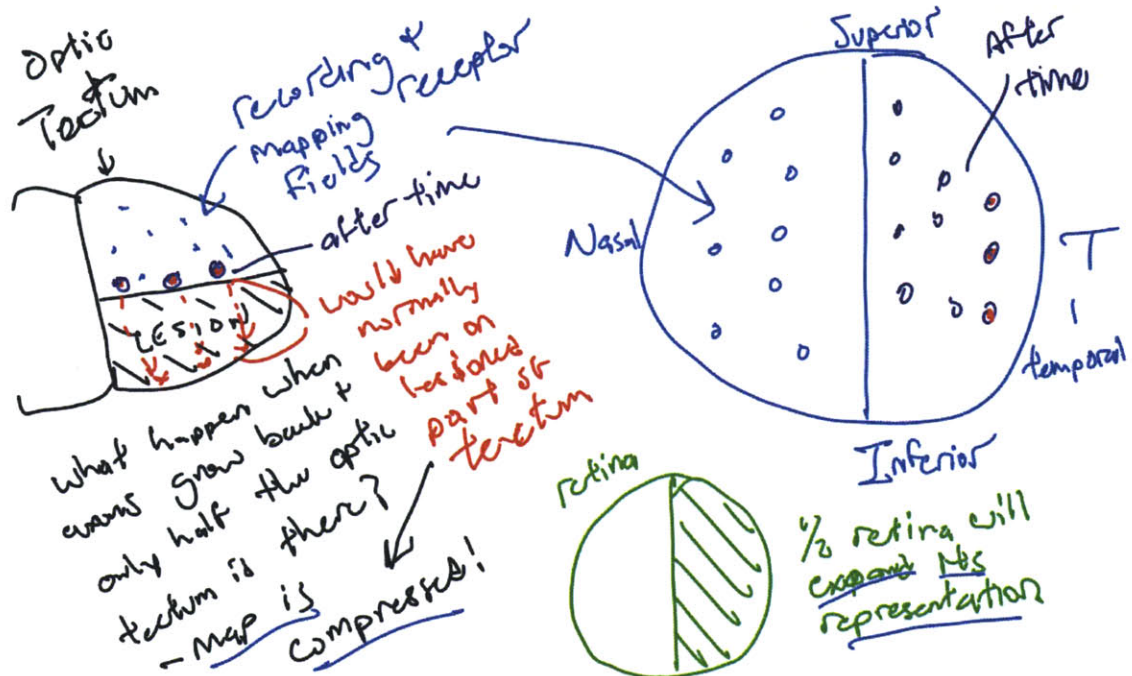 Optic
Tectum
recording +
receptor
mapping
fields
after time
LESION
would have
normally
been on
lesioned
part of
tectum
what happen when
axons grow back +
only half the optic
tectum is there?
- Map is
compressed!
Superior
After
time
Nasal
T
temporal
Inferior
retina
1/2 retina will
expand its
representation